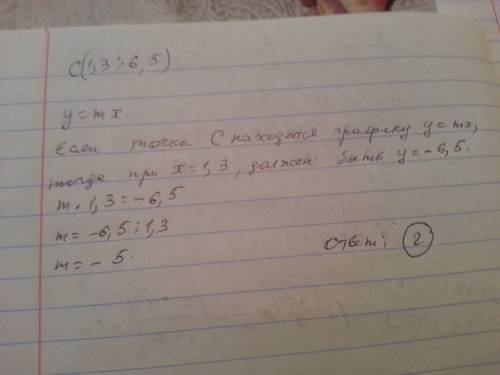 C(1,3;-6,5)
y=mx.
Если точка C находится графику y=mx,
тогда при x=1,3, должен быть y=-6,5.
m·1,3=-6,5
m=-6,5:1,3
m=-5.
Ответ: 2